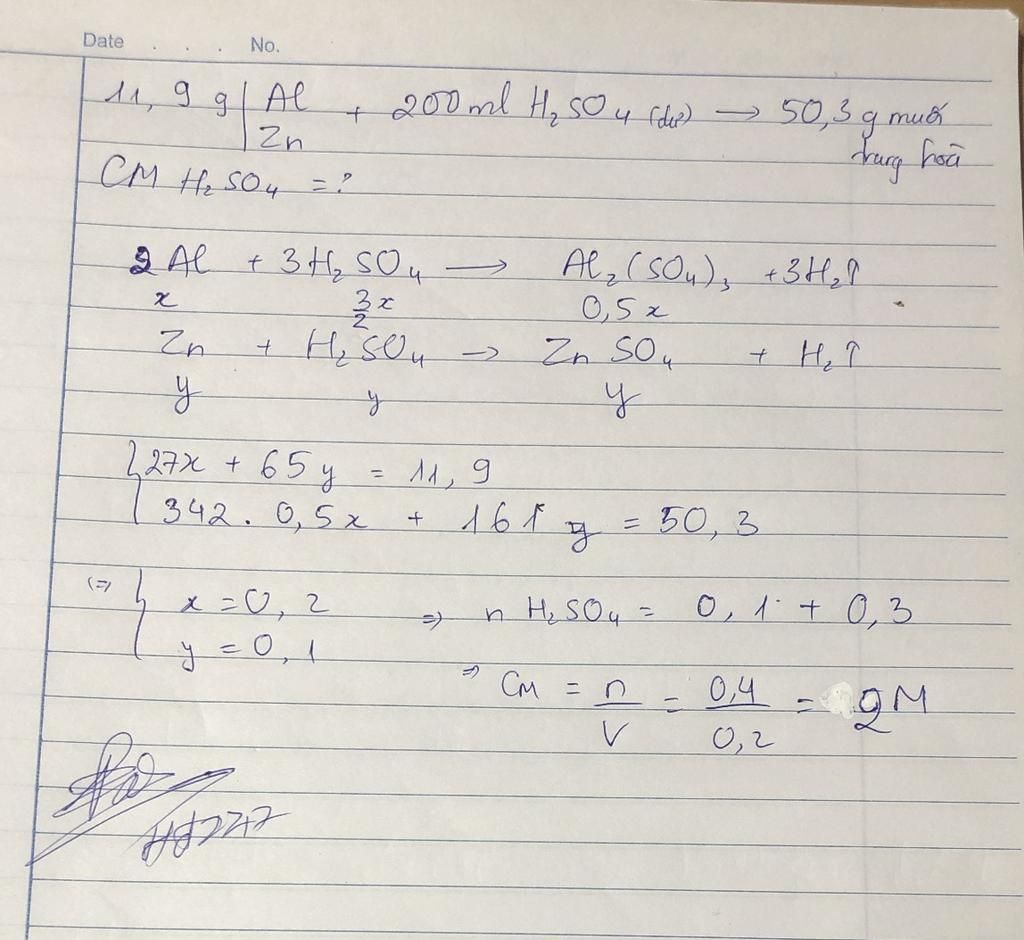 Date . . . . No.
11, 9 g | Al + 200 ml H₂SO₄ (dư) → 50, 3 g muối
Zn trung hoà
CM H₂SO₄ = ?
2 Al + 3H₂SO₄ → Al₂(SO₄)₃ + 3H₂↑
x 3/2 x 0,5x
Zn + H₂SO₄ → ZnSO₄ + H₂↑
y y y
{ 27x + 65y = 11, 9
342. 0,5x + 161 y = 50, 3
(=> { x = 0, 2 => n H₂SO₄ = 0, 1 + 0, 3
y = 0, 1
=> CM = n/V = 0,4/0,2 = 2M